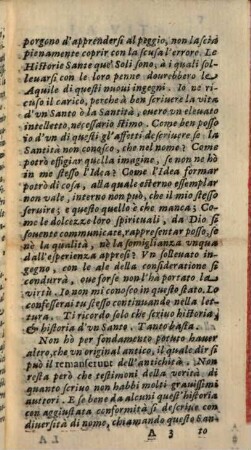 porgono d'apprendersi al peggio, non lascia
pienamente coprir con la scusa l'errore. Le
Historie Sante que' Soli sono, à i quali sol-
leuarsi con le loro penne dourebbero le
Aquile di questi nuoui ingegni. Io nè ri-
cuso il carico, perche à ben scriuere la vita
d'vn Santo ò la Santità, ouero vn eleuato
intelletto, necessario stimo. Come ben posso
io d'vn di questi gl'affetti descriuere se la
Santità non conosco, che nel nome? Come
potrò effigiar quella imagine, se non ne hò
in me stesso l'Idea? Come l'Idea formar
potrò di cosa, alla quale esterno essemplar
non vale, interno non può, che il mio stesso
seruire; e questo quello è che manca? Co-
me le dolcezze loro spirituali, da Dio sì
souente communicate, rappresentar posso, se
nè la qualità, nè la somiglianza vnqua
dall'esperienza appresi? Vn solleuato in-
gegno, con le ale della consideratione si
condurrà, oue forse non l'hà portato la
virtù. Io non mi conosco in questo stato. Lo
confesserai tu stesso continuando nella let-
tura. Ti ricordo solo che scriuo historia,
& historia d'vn Santo. Tanto basta.
Non hò per fondamento potuto hauer
altro, che vn original antico, il quale dir si
può il remanserunt dell'antichità. Non
resta però che testimoni della verità di
quanto scriuo non habbi molti grauissimi
autori. E se bene da alcuni quest'historia
con aggiustata conformità si descriue con
diuersità di nomi, chiamando questo San-
A 3 to